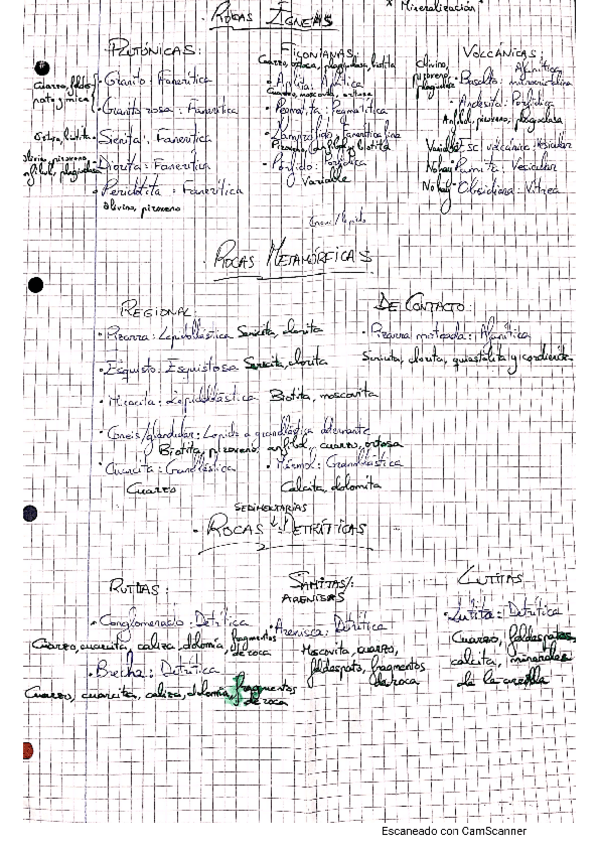 * Mineralización
· ROCAS ÍGNEAS
PLUTÓNICAS:
Cuarzo, felds-
pato y mica
· Granito: Fanerítica
· Granito rosa: Fanerítica
Ortosa, biotita · Sienita: Fanerítica
olivino, piroxeno
anfíbol, plagioclasa
· Diorita: Fanerítica
· Peridotita: Fanerítica
Olivino, piroxeno
FILONIANAS:
Cuarzo, ortosa, plagioclasa, biotita
· Aplita: Aplítica
Cuarzo, moscovita, ortosa
· Pegmatita: Pegmatítica
· Lamprófido: Fanerítica fina
Piroxeno, anfíbol y biotita
· Pórfido: Porfídica
Variable
VOLCÁNICAS:
Olivino,
piroxeno,
plagioclasa
· Basalto: Afanítica
· Andesita: Porfídica
Anfíbol, piroxeno, plagioclasa
Variable · Esc. volcánica: Vesicular
No hay · Pumita: Vesicular
No hay · Obsidiana: Vítrea
· ROCAS METAMÓRFICAS
REGIONAL
· Pizarra: Lepidoblástica Sericita, clorita
· Esquisto: Esquistosa Sericita, clorita
· Micacita: Lepidoblástica Biotita, moscovita
· Gneis/glandular: Lepido a granoblástica
Biotita, piroxeno, anfíbol, cuarzo, ortosa
· Cuarcita: Granoblástica
Cuarzo
· Mármol: Granoblástica
Calcita, dolomita
DE CONTACTO
· Pizarra moteada: Afanítica
Sericita, clorita, quiastolita y cordierita
SEDIMENTARIAS
· ROCAS DETRÍTICAS
RUDITAS:
· Conglomerado: Detrítica
Cuarzo, cuarcita, caliza, dolomía, fragmentos
de roca
· Brecha: Detrítica
Cuarzo, cuarcita, caliza, dolomía, fragmentos
de roca
SAMITAS/:
ARENISCAS
· Arenisca: Detrítica
Moscovita, cuarzo,
feldespato, fragmentos
de roca
LUTITAS
· Lutita: Detrítica
Cuarzo, feldespatos,
calcita, minerales
de la arcilla
Escaneado con CamScanner